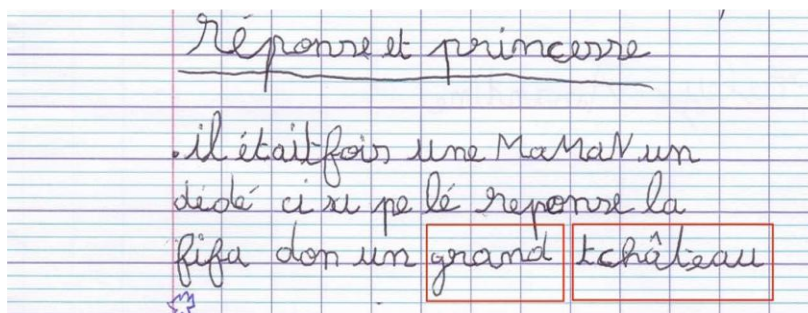 Réponse et princesse
.il était fois une MaMaN un
dédé ci su pe lé reponse la
fifa don un grand tchâteau